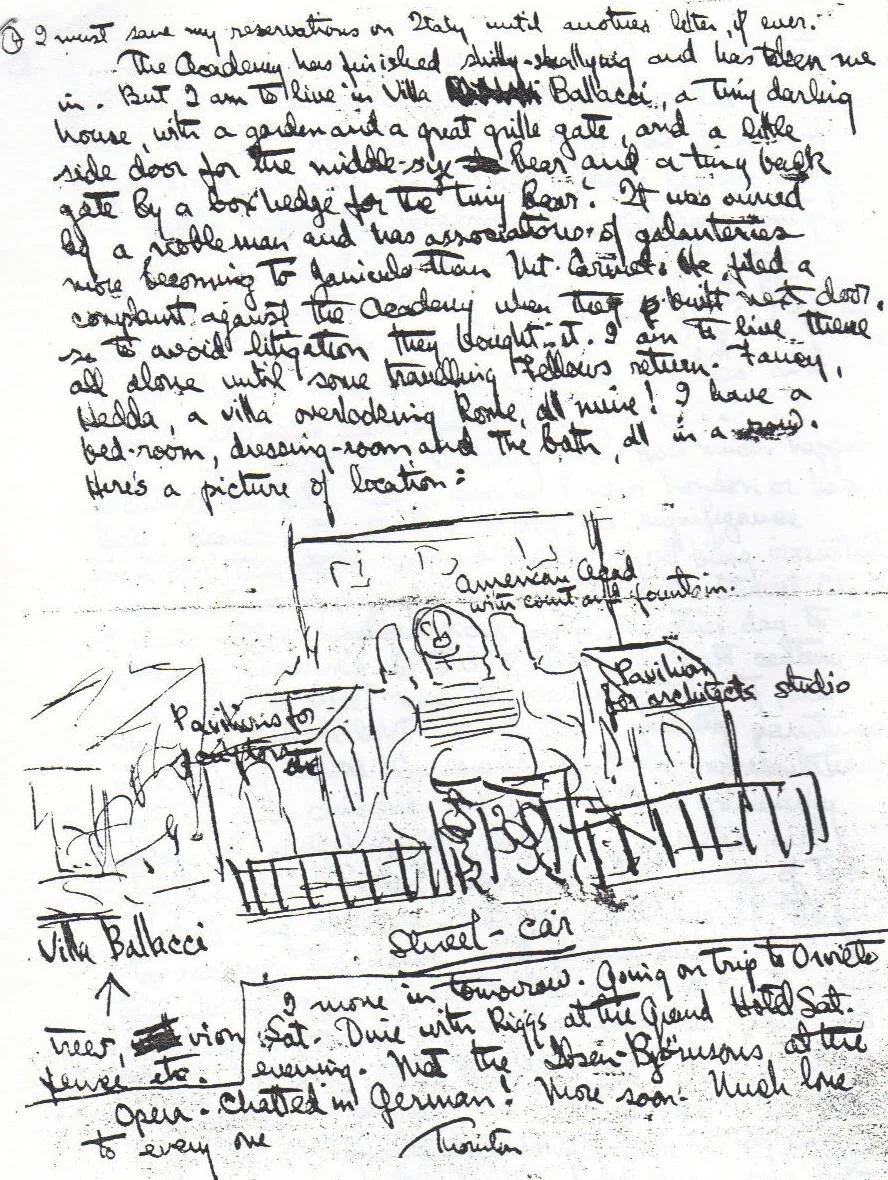 I must save my reservations on Italy until another letter, if ever.
The Academy has finished shilly-shallying and has taken me
in. But I am to live in Villa Ballacci, a tiny darling
house, with a garden and a great grille gate, and a little
side door for the middle-size bear and a tiny back
gate by a box hedge for the tiny bear. It was owned
by a nobleman and has associations of galanteries
more becoming to Janiculo than Mt. Carmel. He filed a
complaint against the Academy when they built next door.
so to avoid litigation they bought it. I am to live there
all alone until some travelling Fellows return. Fancy,
Hedda, a villa overlooking Rome, all mine! I have a
bed-room, dressing-room and the bath, all in a row.
Here's a picture of location:
American Acad
with court and fountain.
Pavilion
for architects studio
Pavilions for
sculptors
etc
Villa Ballacci
Street-car
trees,
fence etc.
I move in tomorrow. Going on trip to Orvieto
Sat. Dine with Riggs at the Grand Hotel Sat.
evening. Met the Ibsen-Björnsons at the
Opera - chatted in German! More soon. Much love
to every one
Thornton